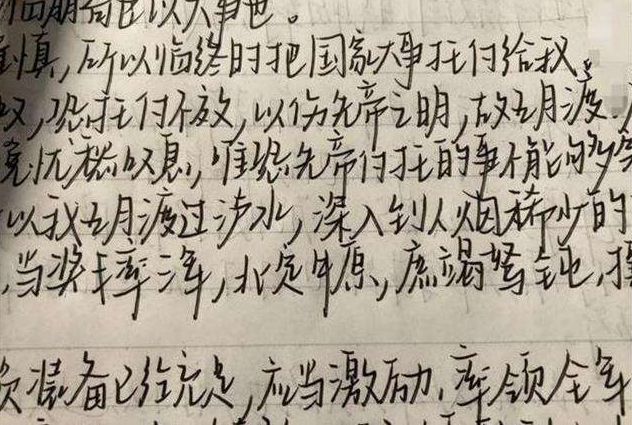 临崩寄臣以大事也。
谨慎,所以临终时把国家大事托付给我。
叹,恐托付不效,以伤先帝之明,故五月渡
忧愁叹息,唯恐先帝付托的事不能
以我五月渡过泸水,深入到人烟稀少的
,当奖率三军,北定中原,庶竭驽钝,
装备已经充足,应当激励,率领全军